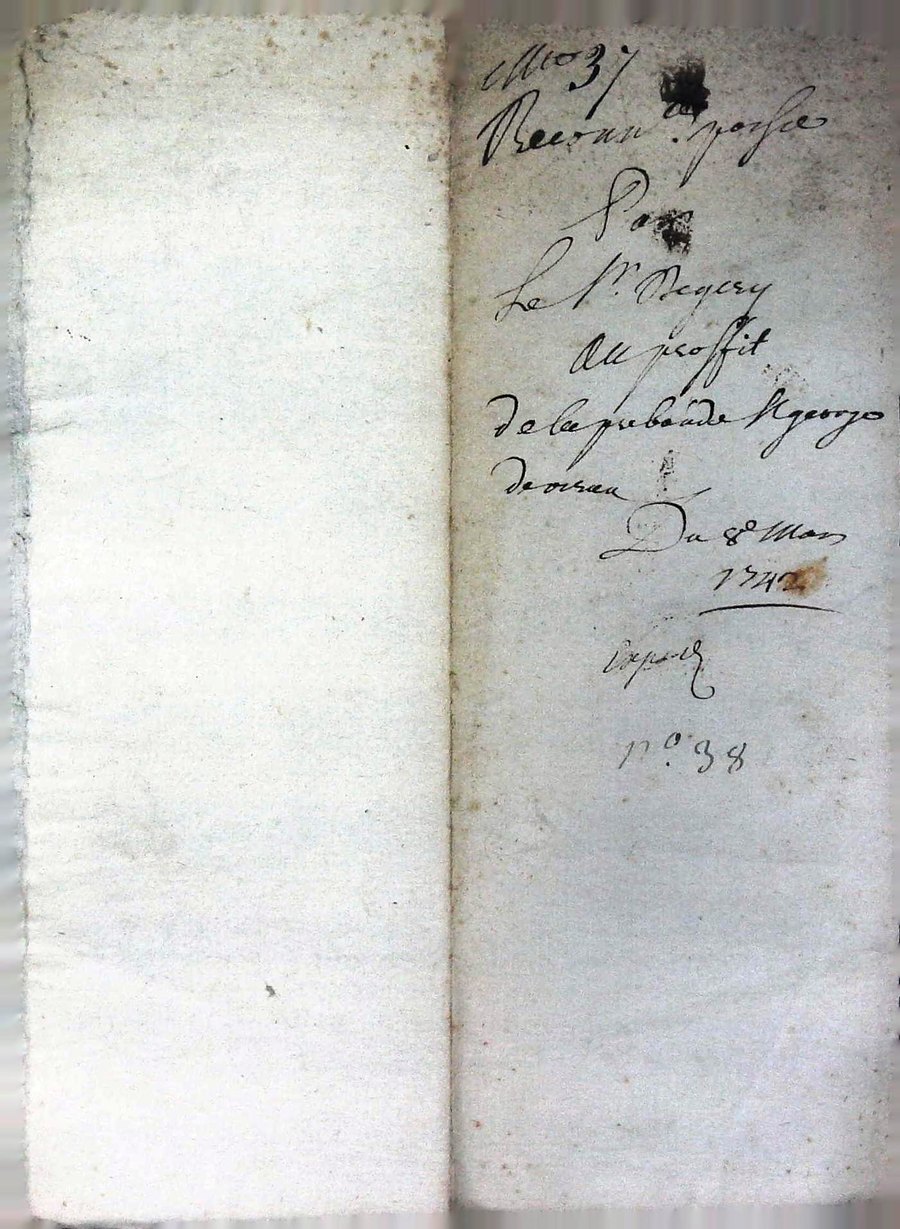 N° 37
Reconn.ce passée
Par
Le Sr. Regery
Au proffit
de la prebande St george
Du 8e Mars
1742
Expedié
n°. 38